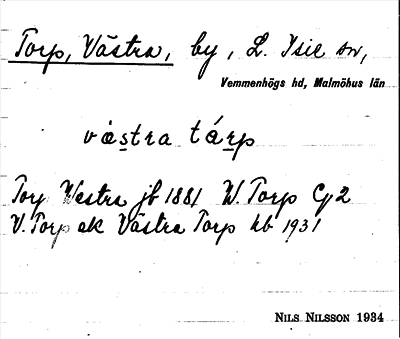 Torp, Västra, by, L. Isie sn,
Vemmenhögs hd, Malmöhus län
västra tárp
Torp Westra jb 1881 W. Torp Cg2
V. Torp ek Västra Torp hb 1931
NILS NILSSON 1934